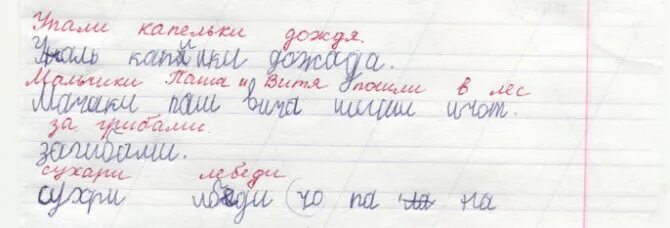 Упали капельки дождя.
Упаль капйики дожада.
Мальчики Паша и Витя пошли в лес
Мачаки паш вича шигили ичот.
за грибами.
загибами.
сухари лебеди
сухри лбеди (чо па на